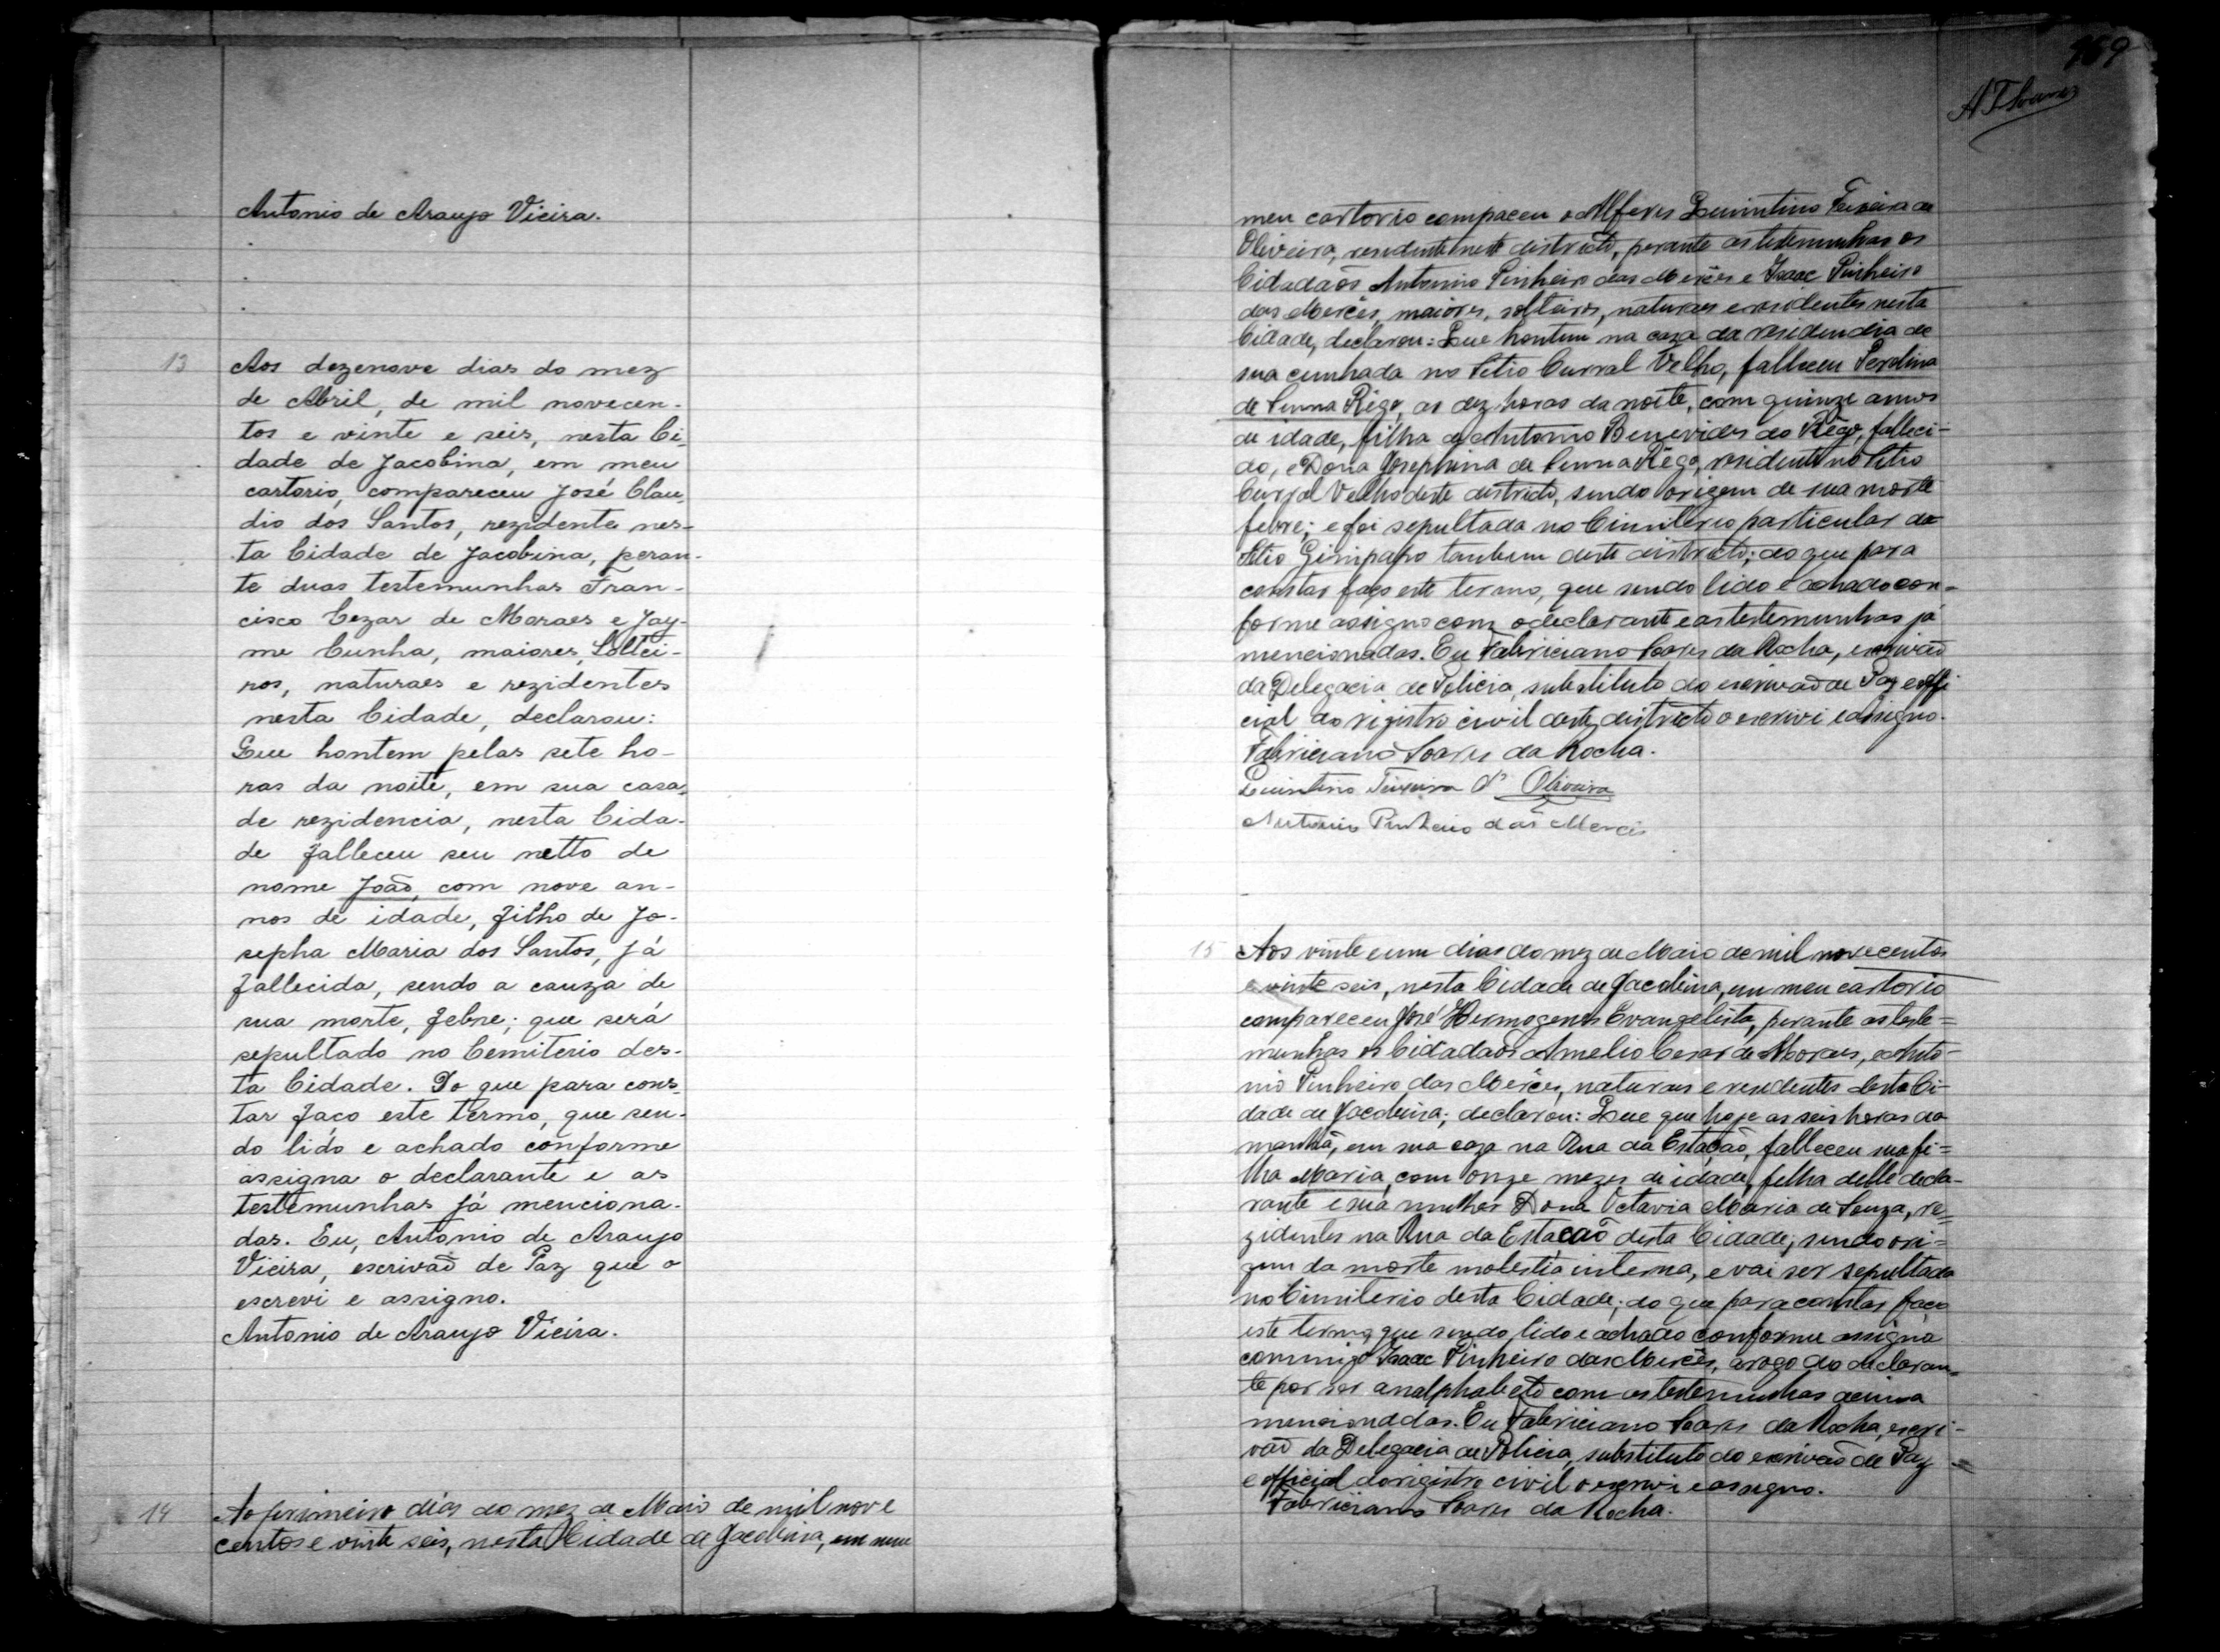 Antonio de Araujo Vieira.
13
Aos dezenove dias do mez
de Abril, de mil novecen-
tos e vinte e seis, nesta Ci-
dade de Jacobina, em meu
cartorio, compareceu José Clau-
dio dos Santos, rezidente nes-
ta Cidade de Jacobina, peran-
te duas testemunhas Fran-
cisco Cezar de Moraes e Jay-
me Cunha, maiores, Soltei-
ros, naturaes e rezidentes
nesta Cidade, declarou:
Que hontem pelas sete ho-
ras da noite, em sua casa
de rezidencia, nesta Cida-
de falleceu seu netto de
nome João, com nove an-
nos de idade, filho de Jo-
sepha Maria dos Santos, já
fallecida, sendo a cauza de
sua morte, febre; que será
sepultado no Cemiterio des-
ta Cidade. Do que para cons-
tar faço este termo, que sen-
do lido e achado conforme
assigna o declarante e as
testemunhas já menciona-
das. Eu, Antonio de Araujo
Vieira, escrivão de Paz que o
escrevi e assigno.
Antonio de Araujo Vieira.
14
Ao primeiro dias do mez de Maio de mil nove
centos e vinte seis, nesta Cidade de Jacobina, em meu
169
meu cartorio compaceu o Alferes Quintino Teixeira de
Oliveira, residente neste districto, perante as testemunhas os
Cidadãos Antonio Pinheiro das Mercês e Isaac Pinheiro
das Mercês, maiores, solteiros, naturaes e residentes nesta
Cidade, declarou: Que hontem na caza da residencia de
sua cunhada no Sitio Curral Velho, falleceu Perolina
de Senna Rêgo, as dez horas da noite, com quinze annos
de idade, filha de Antonio Benevides do Rêgo, falleci-
do, e Dona Josephina de Senna Rêgo, residente no Sitio
Curral Velho deste districto, sendo origem de sua morte
febre; e foi sepultada no Cimiterio particular do
Sitio Ginipapo tambem deste districto; do que para
constar faço este termo, que sendo lido e achado con-
forme assigno com o declarante e as testemunhas já
mencionadas. Eu Fabriciano Soares da Rocha, escrivão
da Delegacia de Policia, substituto do escrivão de Paz e Offi
cial do rigistro civil deste districto o escrivi e assigno.
Fabriciano Soares da Rocha.
Quintino Teixeira d' Oliveira
Antonio Pinheiro das Mercês
15
Aos vinte e um dias do mez de Maio de mil novecentos
e vinte seis, nesta Cidade de Jacobina, em meu cartorio
compareceu José Hermogenes Evangelista, perante as teste=
munhas os Cidadãos Amelio Cesar de Moraes, e Anto-
nio Pinheiro das Mercês, naturaes e residentes desta Ci-
dade de Jacobina; declarou: Que que hoje as seis horas da
manhã, em sua caza na Rua da Estação, falleceu sua fi=
lha Maria, com onze mezes de idade, filha delle decla-
rante e sua mulher Dona Octavia Maria de Souza, re=
zidentes na Rua da Estação desta Cidade; sendo ori=
gem da morte molestia interna, e vai ser sepultada
no Cimiterio desta Cidade; do que para constar faço
este termo, que sendo lido e achado conforme assigna
commigo Isaac Pinheiro das Mercês, arogo do declaran=
te por ser analphabeto com as testemunhas acima
mencionadas. Eu Fabriciano Soares da Rocha, escri-
vão da Delegacia de Policia, substituto do escrivão de Paz
e official do rigistro civil o escrivi e assigno.
Fabriciano Soares da Rocha.